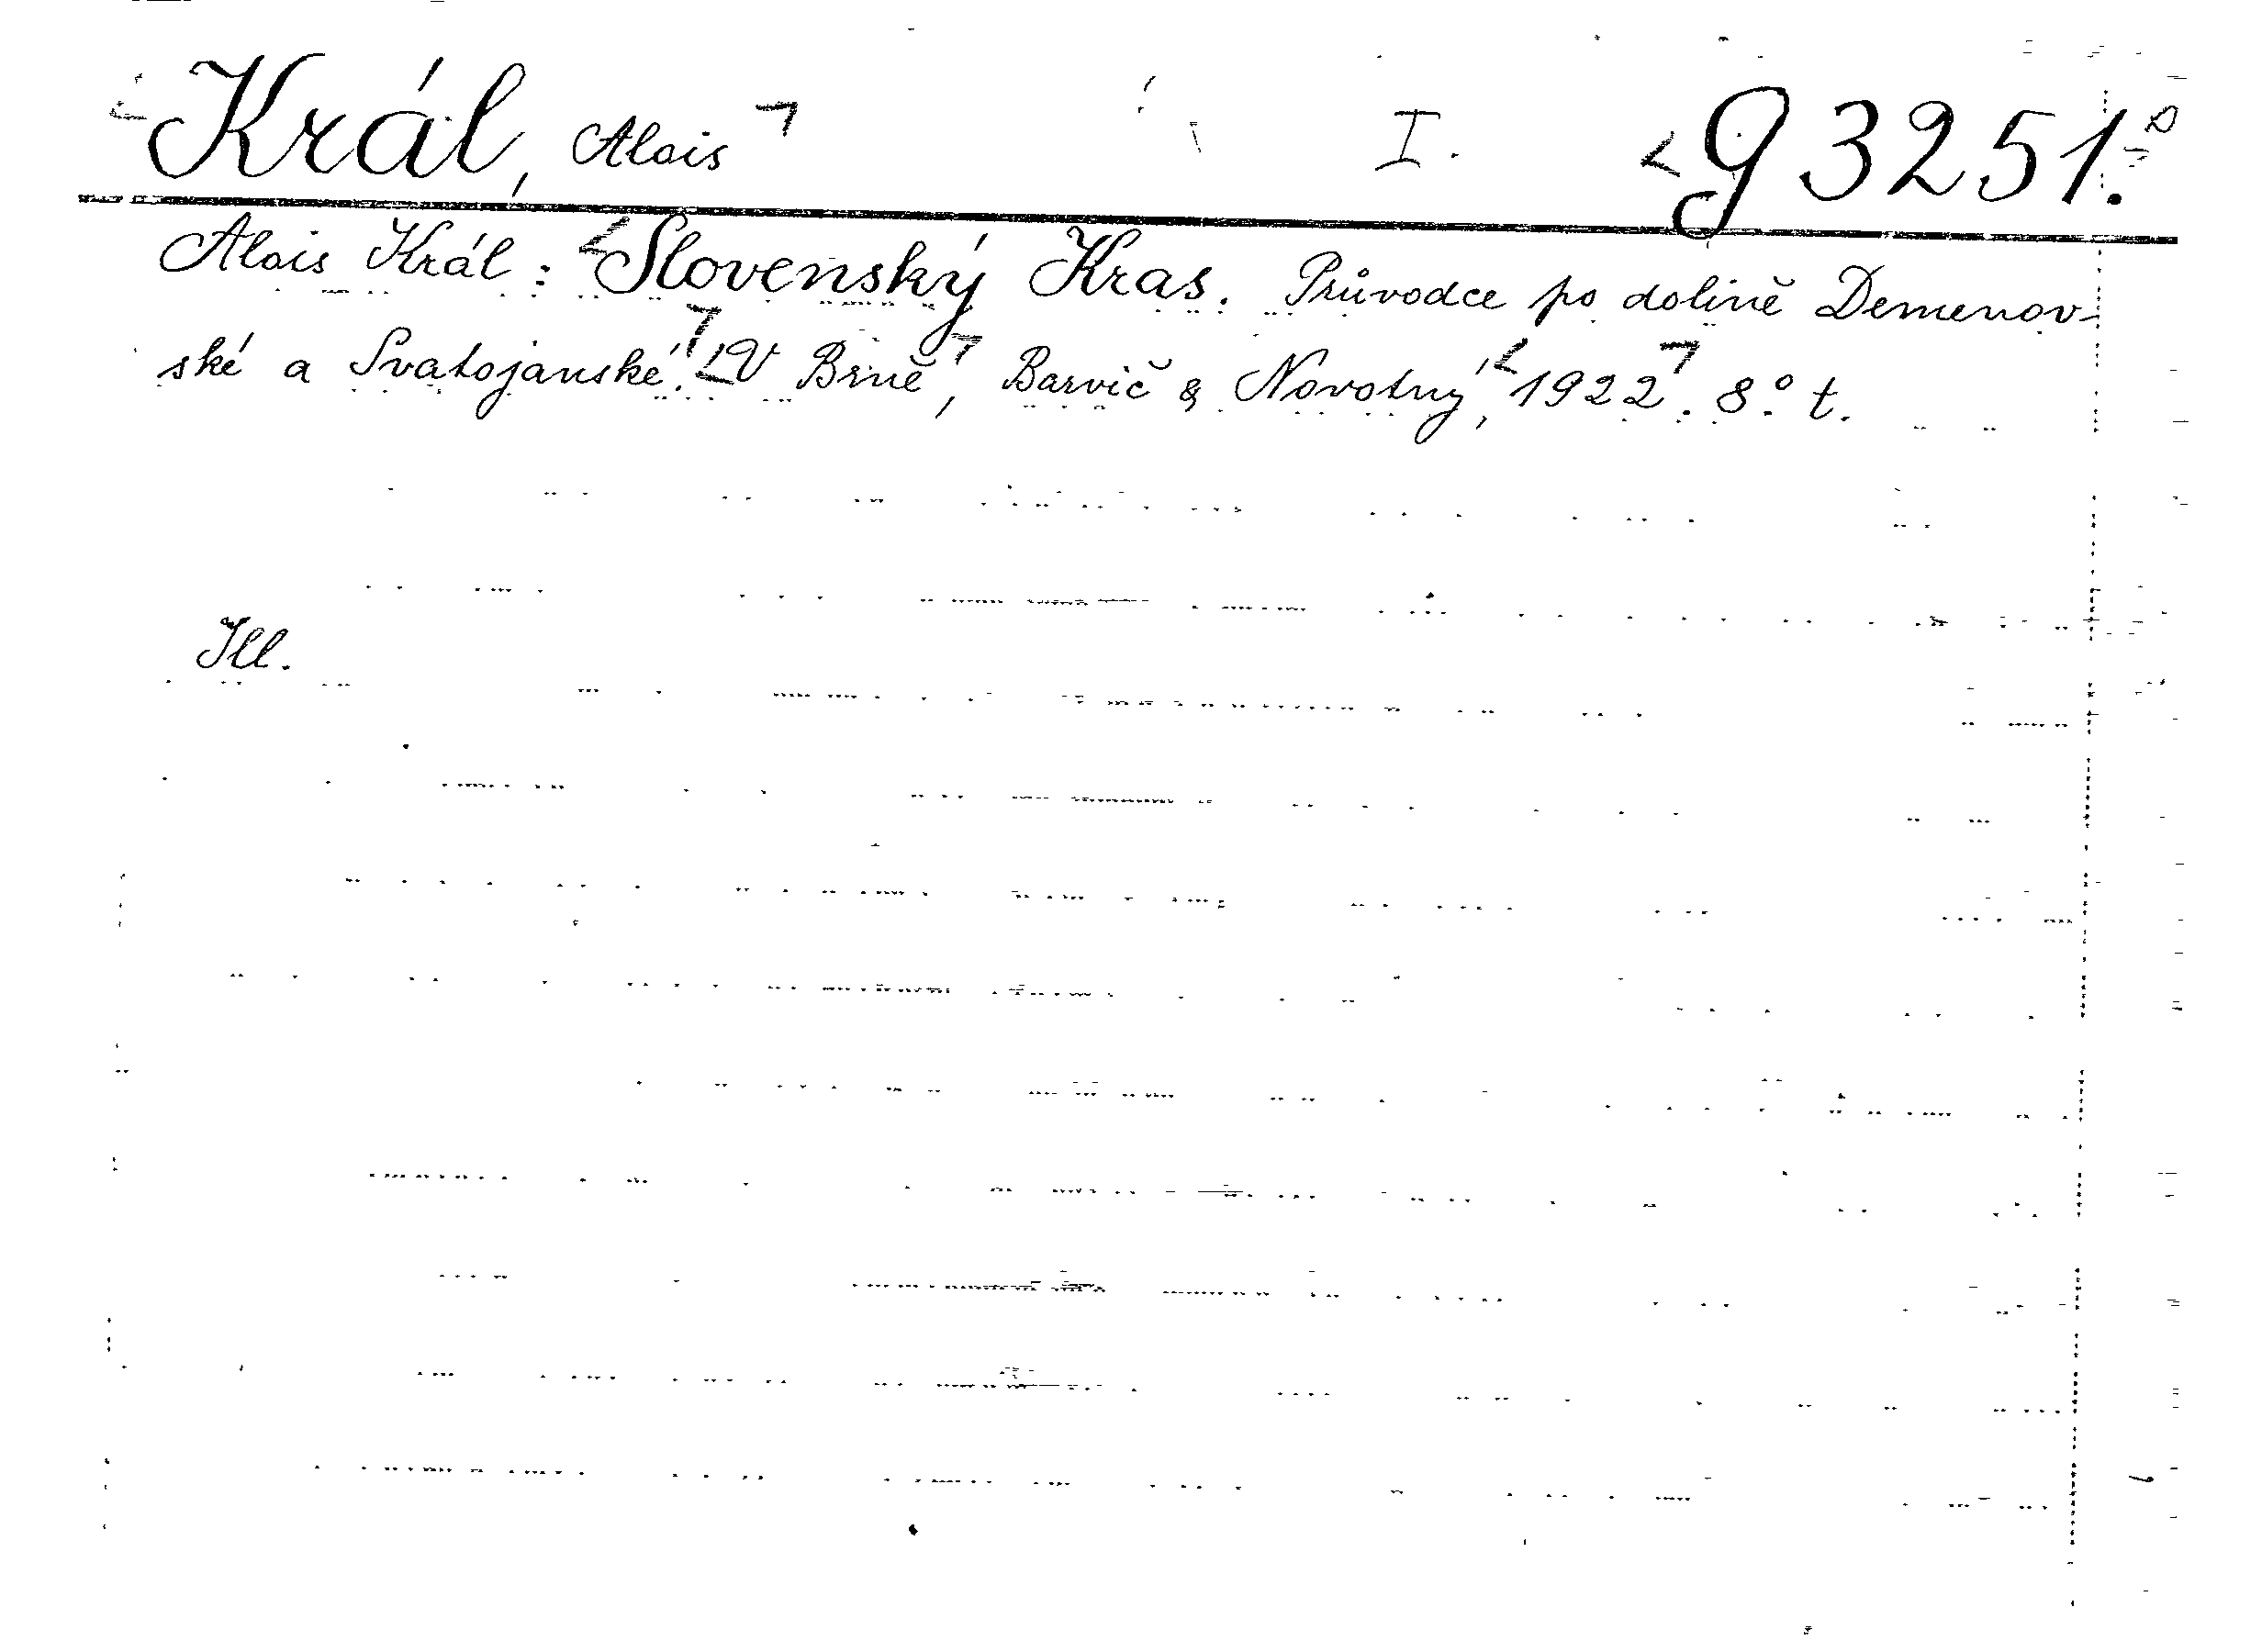 Král, Alois I. g 3251.
Alois Král: Slovenský Kras. Průvodce po dolině Demenov-
ské a Svatojanské. V Brně, Barvič & Novotný, 1922. 8° t.
Ill.